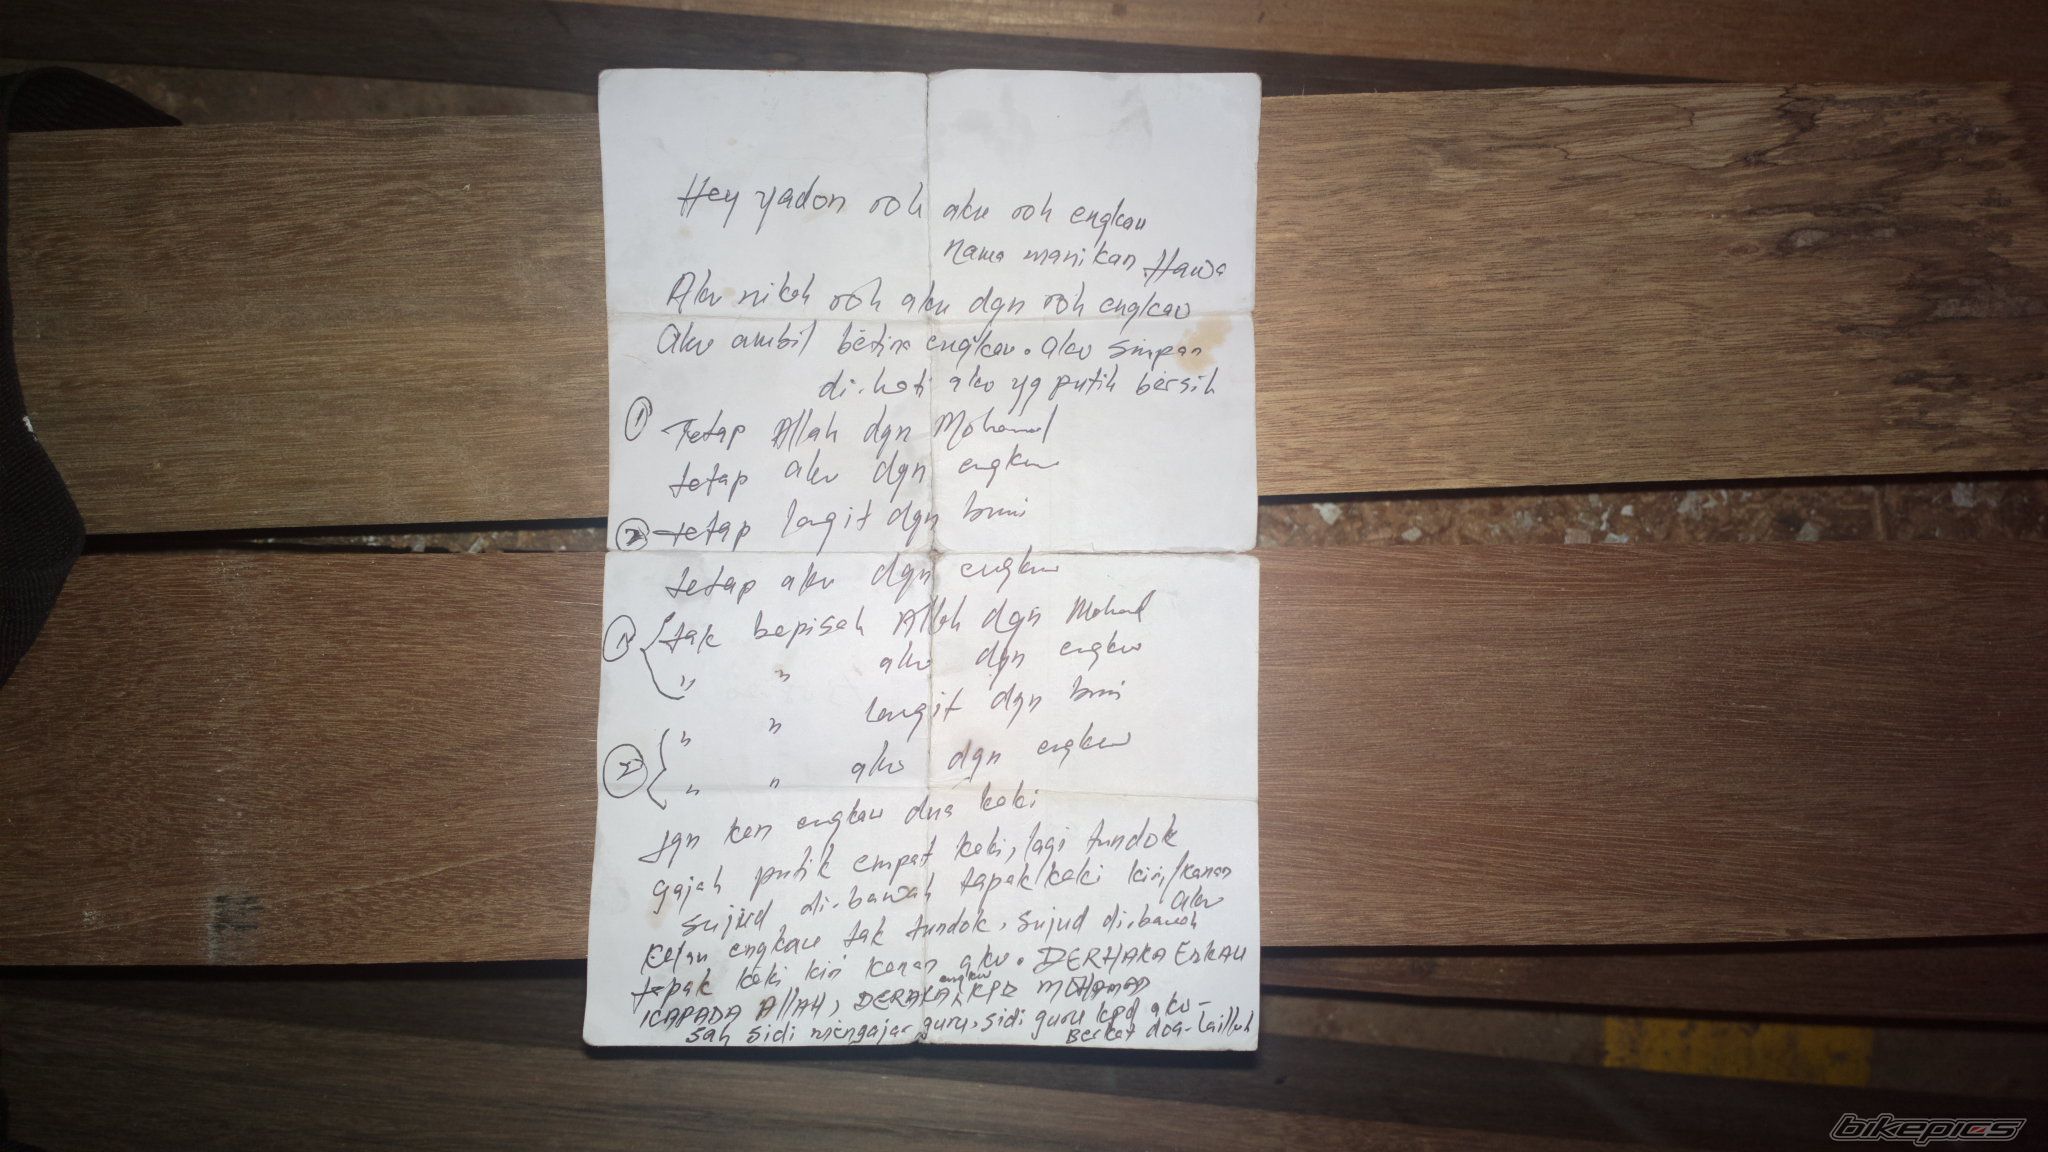 Hey yadon roh aku roh engkau
nama manikan Hawa
Aku nikah roh aku dgn roh engkau
Aku ambil betina engkau. aku simpan
di-hati aku yg putih bersih
① Tetap Allah dgn Mohamad
tetap aku dgn engkau
② tetap langit dgn bumi
tetap aku dgn engkau
① tak bepisah Allah dgn Mohamad
" " aku dgn engkau
" " langit dgn bumi
② " " aku dgn engkau
jgn kan engkau dua kaki
gajah putih empat kaki, lagi tundok
sujud di-bawah tapak kaki kiri/kanan
aku
Kalau engkau tak tundok, sujud di-bawah
tapak kaki kiri kanan aku. DERHAKA EnKAU
KAPADA AllAH, DERAKA engkau KPD MOHAMAD
sah sidi mengajar guru, sidi guru kpd aku -
Berkat doa-lailluh
bikepics